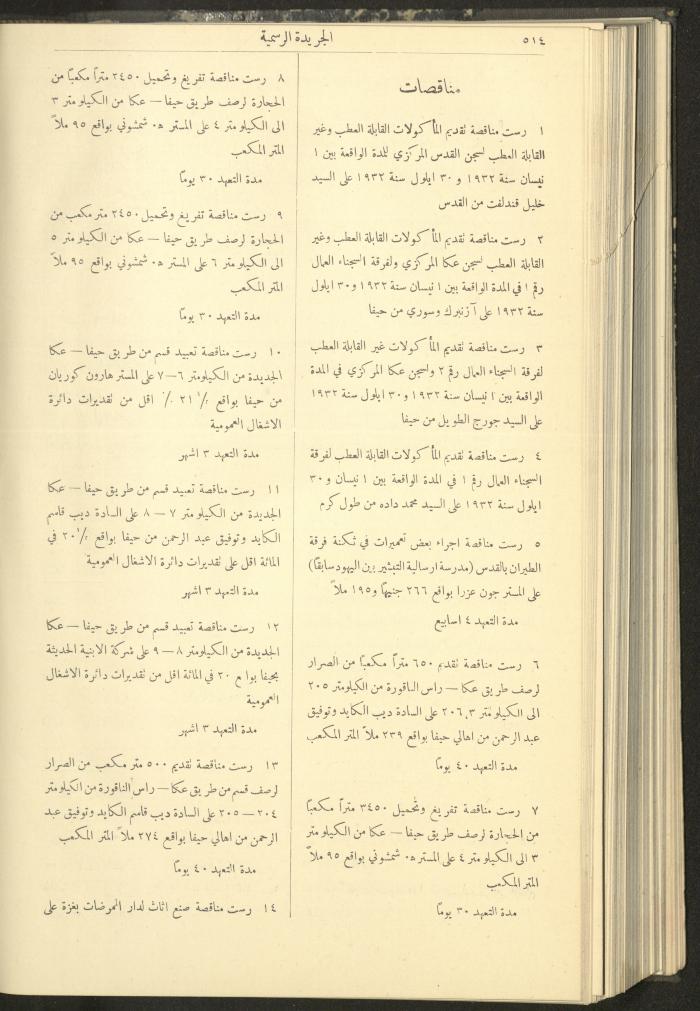 ٥١٤
الجريدة الرسمية
مناقصات
١ رست مناقصة تقديم المأكولات القابلة العطب وغير
القابلة العطب لسجن القدس المركزي للمدة الواقعة بين ١
نيسان سنة ١٩٣٢ و ٣٠ ايلول سنة ١٩٣٢ على السيد
خليل قندلفت من القدس
٢ رست مناقصة تقديم المأكولات القابلة العطب وغير
القابلة العطب لسجن عكا المركزي ولفرقة السجناء العمال
رقم ١ في المدة الواقعة بين ١ نيسان سنة ١٩٣٢ و٣٠ ايلول
سنة ١٩٣٢ على آ زنبرك وسوري من حيفا
٣ رست مناقصة تقديم المأكولات غير القابلة العطب
لفرقة السجناء العمال رقم ٢ ولسجن عكا المركزي في المدة
الواقعة بين ١ نيسان سنة ١٩٣٢ و٣٠ ايلول سنة ١٩٣٢
على السيد جورج الطويل من حيفا
٤ رست مناقصة تقديم المأكولات القابلة العطب لفرقة
السجناء العمال رقم ١ في المدة الواقعة بين ١ نيسان و ٣٠
ايلول سنة ١٩٣٢ على السيد محمد داده من طول كرم
٥ رست مناقصة اجراء بعض تعميرات في ثكنة فرقة
الطيران بالقدس (مدرسة ارسالية التبشير بين اليهود سابقاً)
على المستر جون عزرا بواقع ٢٦٦ جنيهاً و١٩٥ ملاً
مدة التعهد ٤ اسابيع
٦ رست مناقصة تقديم ٦٥٠ متراً مكعباً من الصرار
لرصف طريق عكا — راس الناقورة من الكيلومتر ٢٠٥
الى الكيلومتر ٢٠٦،٣ على السادة ديب الكايد وتوفيق
عبد الرحمن من اهالي حيفا بواقع ٢٣٩ ملاً المتر المكعب
مدة التعهد ٤٠ يوماً
٧ رست مناقصة تفريغ وتحميل ٣٤٥٠ متراً مكعباً
من الحجارة لرصف طريق حيفا — عكا من الكيلومتر
٣ الى الكيلومتر ٤ على المستر ه٠ شمشوني بواقع ٩٥ ملاً
المتر المكعب
مدة التعهد ٣٠ يوماً
٨ رست مناقصة تفريغ وتحميل ٢٤٥٠ متراً مكعباً من
الحجارة لرصف طريق حيفا — عكا من الكيلومتر ٣
الى الكيلومتر ٤ على المستر ه٠ شمشوني بواقع ٩٥ ملاً
المتر المكعب
مدة التعهد ٣٠ يوماً
٩ رست مناقصة تفريغ وتحميل ٢٤٥٠ متر مكعب من
الحجارة لرصف طريق حيفا — عكا من الكيلومتر ٥
الى الكيلومتر ٦ على المستر ه٠ شمشوني بواقع ٩٥ ملاً
المتر المكعب
مدة التعهد ٣٠ يوماً
١٠ رست مناقصة تعبيد قسم من طريق حيفا — عكا
الجديدة من الكيلومتر ٦—٧ على المستر هارون كوريان
من حيفا بواقع ٢١ ٪ اقل من تقديرات دائرة
الاشغال العمومية
مدة التعهد ٣ اشهر
١١ رست مناقصة تعبيد قسم من طريق حيفا — عكا
الجديدة من الكيلومتر ٧ — ٨ على السادة ديب قاسم
الكايد وتوفيق عبد الرحمن من حيفا بواقع ٢٠ في
المائة اقل على تقديرات دائرة الاشغال العمومية
مدة التعهد ٣ اشهر
١٢ رست مناقصة تعبيد قسم من طريق حيفا — عكا
الجديدة من الكيلومتر ٨ — ٩ على شركة الابنية الحديثة
بحيفا بواقع ٢٠ في المائة اقل من تقديرات دائرة الاشغال
العمومية
مدة التعهد ٣ اشهر
١٣ رست مناقصة تقديم ٥٠٠ متر مكعب من الصرار
لرصف قسم من طريق عكا — راس الناقورة من الكيلومتر
٢٠٤ — ٢٠٥ على السادة ديب قاسم الكايد وتوفيق عبد
الرحمن من اهالي حيفا بواقع ٢٧٤ ملاً المتر المكعب
مدة التعهد ٤٠ يوماً
١٤ رست مناقصة صنع اثاث لدار الممرضات بغزة على